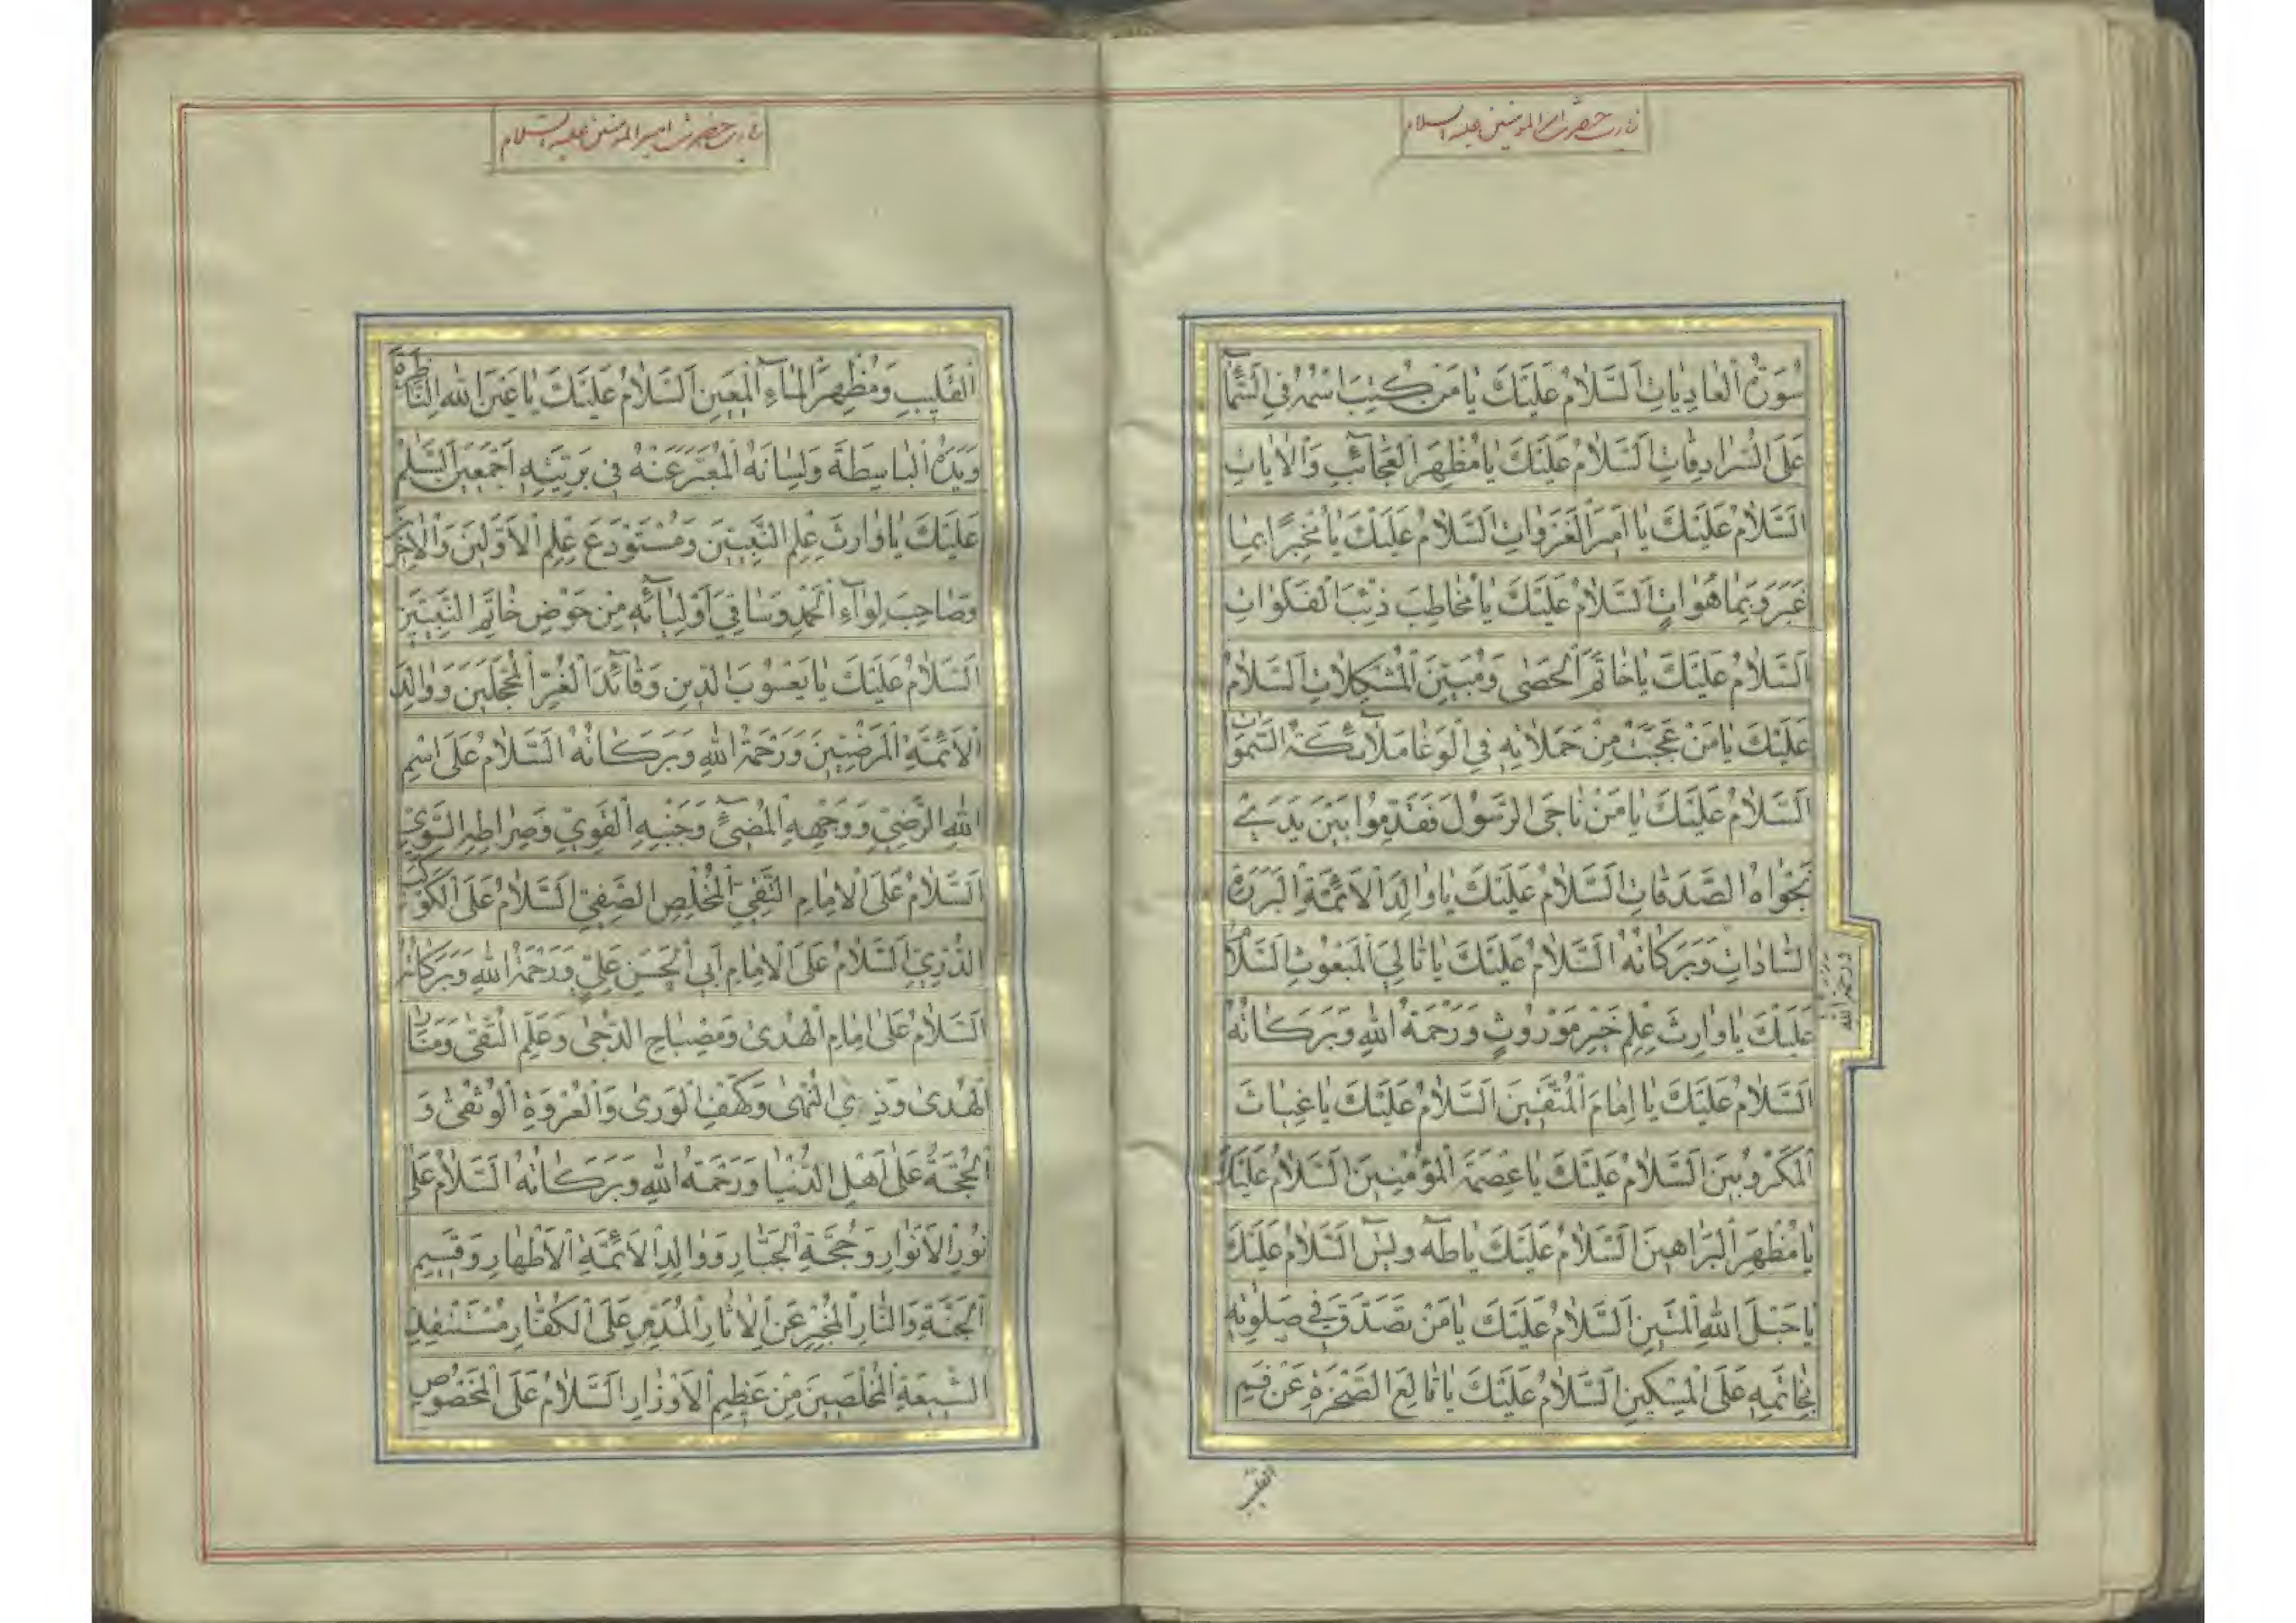 زیارت حضرت امیرالمومنین علیه السلام
سُورَةُ الْعَادِيٰاتِ اَلسَّلَامُ عَلَيْكَ يَا مَنْ كُتِبَ اسْمُهُ فِي السَّمَآءِ
عَلَى السُّرَادِقٰاتِ اَلسَّلَامُ عَلَيْكَ يَا مُظْهِرَ الْعَجَآئِبِ وَالْاٰيَاتِ
اَلسَّلَامُ عَلَيْكَ يَا اَمِيرَ الْغَزَوٰاتِ اَلسَّلَامُ عَلَيْكَ يَا مُخْبِرًا بِمَا
غَبَرَ وَبِمَا هُوَ اٰتٍ اَلسَّلَامُ عَلَيْكَ يَا مُخَاطِبَ ذِئْبِ الْفَلَوَاتِ
اَلسَّلَامُ عَلَيْكَ يَا خَاتَمَ الْحَصٰى وَمُبَيِّنَ الْمُشْكِلَاتِ اَلسَّلَامُ
عَلَيْكَ يَا مَنْ عَجِبَتْ مِنْ حَمَلَاتِهِ فِي الْوَغَا مَلَآئِكَةُ السَّمٰوَاتِ
اَلسَّلَامُ عَلَيْكَ يَا مَنْ نَاجَى الرَّسُولَ فَقَدَّمُوا بَيْنَ يَدَيْ
نَجْوَاهُ الصَّدَقَاتِ اَلسَّلَامُ عَلَيْكَ يَا وَالِدَ الْاَئِمَّةِ الْبَرَرَةِ
السَّادَاتِ وَبَرَكَاتُهُ اَلسَّلَامُ عَلَيْكَ يَا تَالِيَ الْمَبْعُوثِ اَلسَّلَامُ
ورحمة الله
عَلَيْكَ يَا وَارِثَ عِلْمِ خَيْرِ مَوْرُوثٍ وَرَحْمَةُ اللّٰهِ وَبَرَكَاتُهُ
اَلسَّلَامُ عَلَيْكَ يَا اِمَامَ الْمُتَّقِينَ اَلسَّلَامُ عَلَيْكَ يَا غِيَاثَ
الْمَكْرُوبِينَ اَلسَّلَامُ عَلَيْكَ يَا عِصْمَةَ الْمُؤْمِنِينَ اَلسَّلَامُ عَلَيْكَ
يَا مُظْهِرَ الْبَرَاهِينَ اَلسَّلَامُ عَلَيْكَ يَا طٰهٰ وَيٰسٓ اَلسَّلَامُ عَلَيْكَ
يَا حَبْلَ اللّٰهِ الْمَتِينِ اَلسَّلَامُ عَلَيْكَ يَا مَنْ تَصَدَّقَ فِي صَلٰوتِهِ
بِخَاتَمِهِ عَلَى الْمِسْكِينِ اَلسَّلَامُ عَلَيْكَ يَا قَالِعَ الصَّخْرَةِ عَنْ فَمِ
القلیب
زیارت حضرت امیرالمومنین علیه السلام
الْقَلِيبِ وَمُظْهِرَ الْمَآءِ الْمَعِينِ اَلسَّلَامُ عَلَيْكَ يَا عَيْنَ اللّٰهِ النَّاظِرَةَ
وَيَدَهُ الْبَاسِطَةَ وَلِسَانَهُ الْمُعَبِّرَ عَنْهُ فِي بَرِيَّتِهِ اَجْمَعِينَ اَلسَّلَامُ
عَلَيْكَ يَا وَارِثَ عِلْمِ النَّبِيِّينَ وَمُسْتَوْدَعَ عِلْمِ الْاَوَّلِينَ وَالْاٰخِرِينَ
وَصَاحِبَ لِوَآءِ الْحَمْدِ وَسَاقِيَ اَوْلِيَآئِهِ مِنْ حَوْضِ خَاتَمِ النَّبِيِّينَ
اَلسَّلَامُ عَلَيْكَ يَا يَعْسُوبَ الدِّينِ وَقَآئِدَ الْغُرِّ الْمُحَجَّلِينَ وَوَالِدَ
الْاَئِمَّةِ الْمَرْضِيِّينَ وَرَحْمَةُ اللّٰهِ وَبَرَكَاتُهُ اَلسَّلَامُ عَلَى اسْمِ
اللّٰهِ الرَّضِيِّ وَوَجْهِهِ الْمُضِيٓءِ وَجَنْبِهِ الْقَوِيِّ وَصِرَاطِهِ السَّوِيِّ
اَلسَّلَامُ عَلَى الْاِمَامِ التَّقِيِّ الْمُخْلِصِ الصَّفِيِّ اَلسَّلَامُ عَلَى الْكَوْكَبِ
الدُّرِّيِّ اَلسَّلَامُ عَلَى الْاِمَامِ اَبِي الْحَسَنِ عَلِيٍّ وَرَحْمَةُ اللّٰهِ وَبَرَكَاتُهُ
اَلسَّلَامُ عَلٰى اِمَامِ الْهُدٰى وَمِصْبَاحِ الدُّجٰى وَعَلَمِ التُّقٰى وَمَنَارِ
الْهُدٰى وَذِي النُّهٰى وَكَهْفِ الْوَرٰى وَالْعُرْوَةِ الْوُثْقٰى وَ
الْحُجَّةُ عَلٰى اَهْلِ الدُّنْيَا وَرَحْمَةُ اللّٰهِ وَبَرَكَاتُهُ اَلسَّلَامُ عَلٰى
نُورِ الْاَنْوَارِ وَحُجَّةِ الْجَبَّارِ وَوَالِدِ الْاَئِمَّةِ الْاَطْهَارِ وَقَسِيمِ
الْجَنَّةِ وَالنَّارِ الْمُخْبِرِ عَنِ الْاٰثَارِ الْمُدَمِّرِ عَلَى الْكُفَّارِ مُسْتَنْقِذِ
الشِّيعَةِ الْمُخْلَصِينَ مِنْ عَظِيمِ الْاَوْزَارِ اَلسَّلَامُ عَلَى الْمَخْصُوصِ